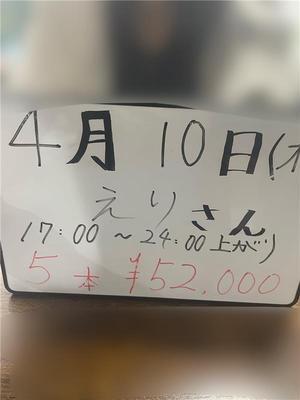 4月10日(木
えりさん
17:00～24:00上がり
5本 ¥52,000